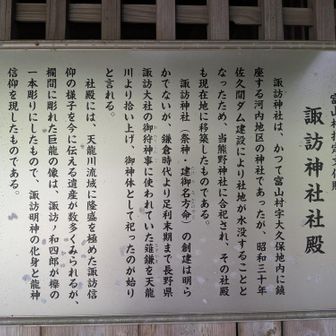 諏訪神社社殿
諏訪神社は、かつて富山村字大久保地内に鎮
座する河内地区の神社であったが、昭和三十年
佐久間ダム建設により社地が水没することと
なったため、当熊野神社に合祀され、その社殿
も現在地に移築したものである。
諏訪神社(祭神・建御名方命)の創建は明ら
かでないが、鎌倉時代より足利末期まで長野県
諏訪大社の御狩神事に使われていた薙鎌を天龍
川より拾い上げ、御神体として祀ったのが始り
と言われる。
社殿には、天龍川流域に隆盛を極めた諏訪信
仰の様子を今に伝える遺産が数多くみられるが、
欄間に彫れた巨龍の像は、諏訪ノ和四郎が欅の
一本彫りにしたもので、諏訪明神の化身と龍神
信仰を現したものである。